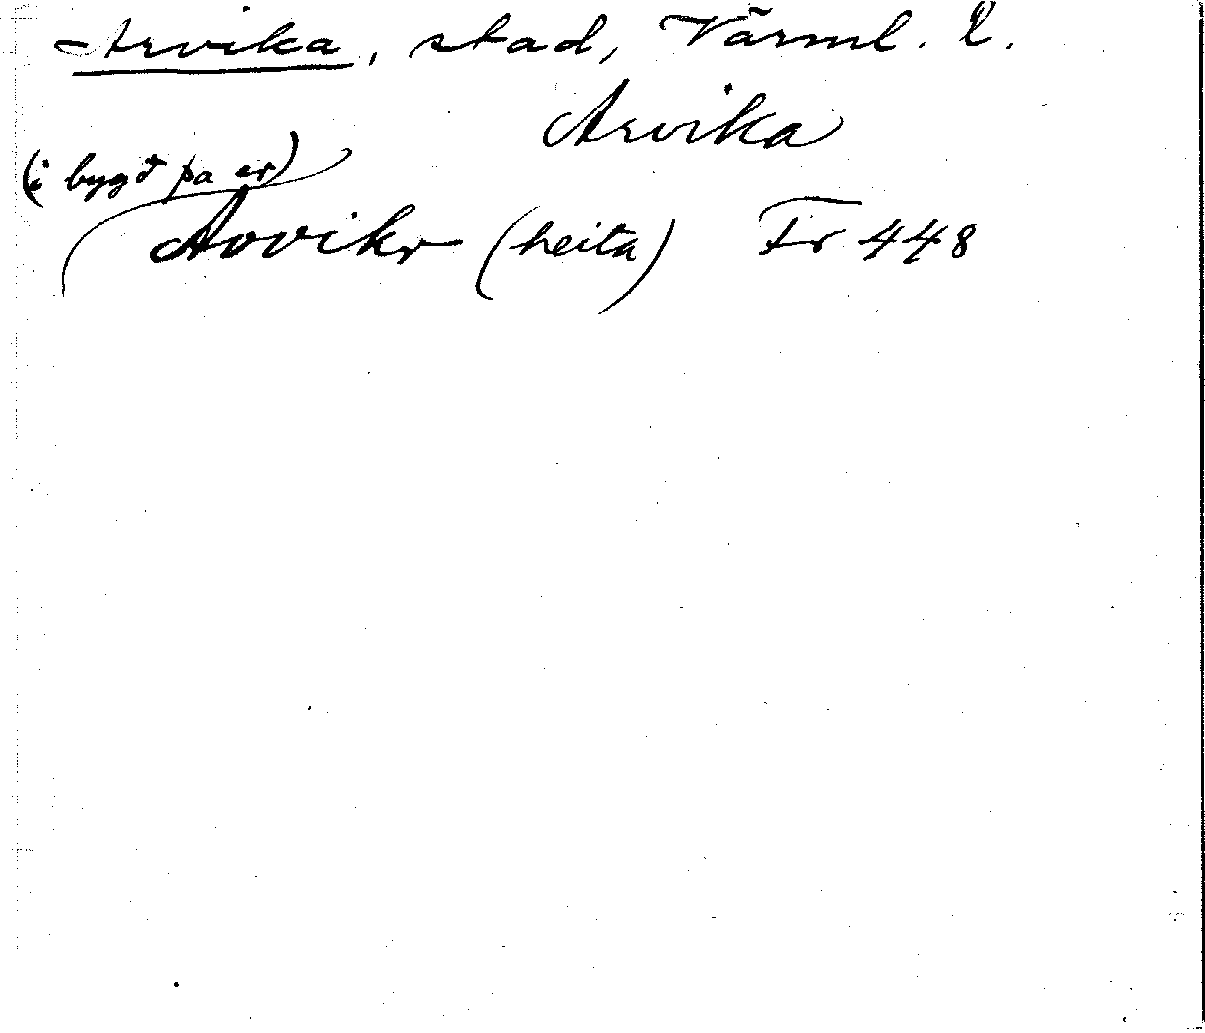 Arvika, stad, Värml. l.
Arvika
(i bygð þa er)
Aovikr (heita) Fr 448